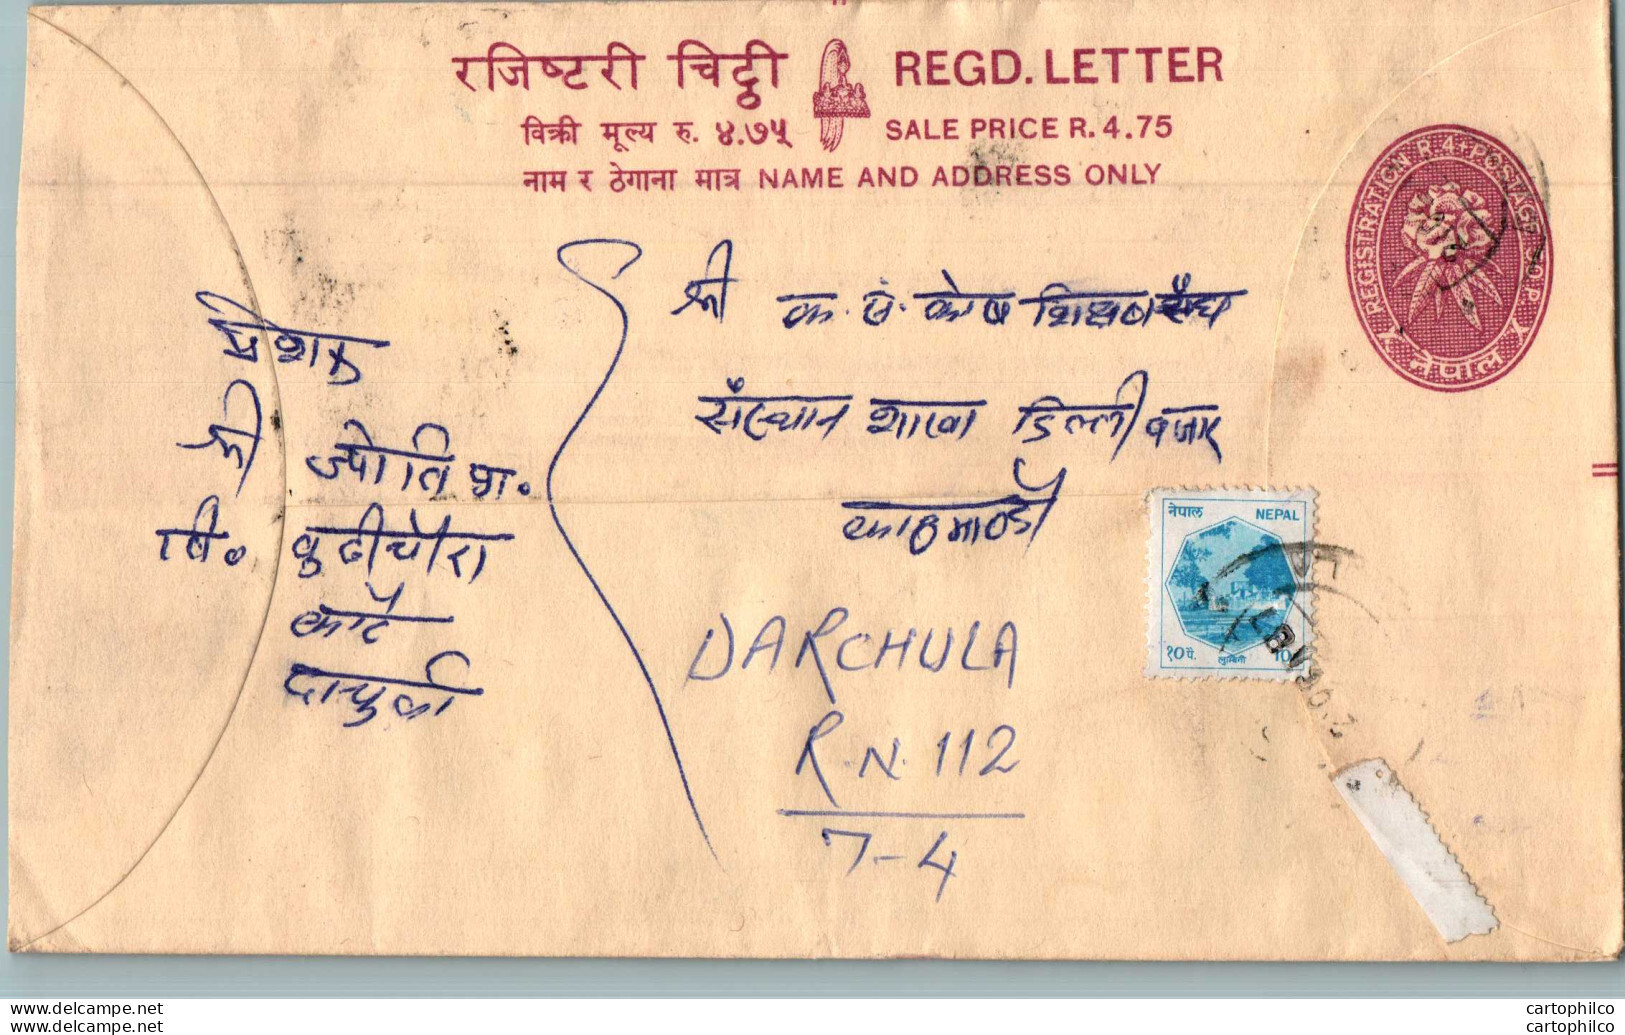 रजिष्टरी चिट्ठी REGD. LETTER
विक्री मूल्य रु. ४.७५ SALE PRICE R. 4.75
नाम र ठेगाना मात्र NAME AND ADDRESS ONLY
REGISTRATION R.4+POSTAGE 70 P.
नेपाल
श्री क. सं. कोष शिक्षण संघ
संस्थान शाखा डिल्लीबजार
काठमाण्डौ
प्रेषक
श्री ज्योति
नि. बुढीचौरा
दार्चुला
नेपाल NEPAL
१० पै. लुम्बिनी 10
DARCHULA
R.N. 112
7-4
cartophilco
cartophilco
cartophilco
cartophilco